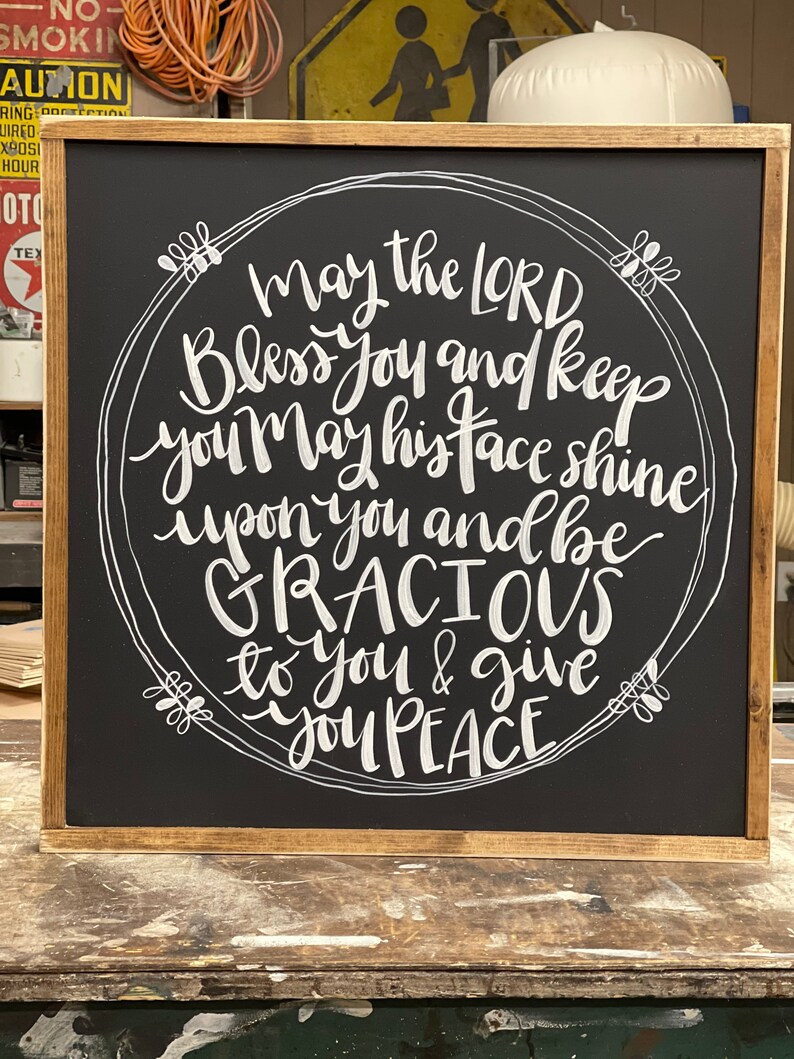 NO
SMOKIN
CAUTION
RING PROTECTION
UIRED
XPOS
HOUR
MOTO
TEX
May the LORD
Bless you and keep
you May his face shine
upon you and be
GRACIOUS
to you & give
you PEACE